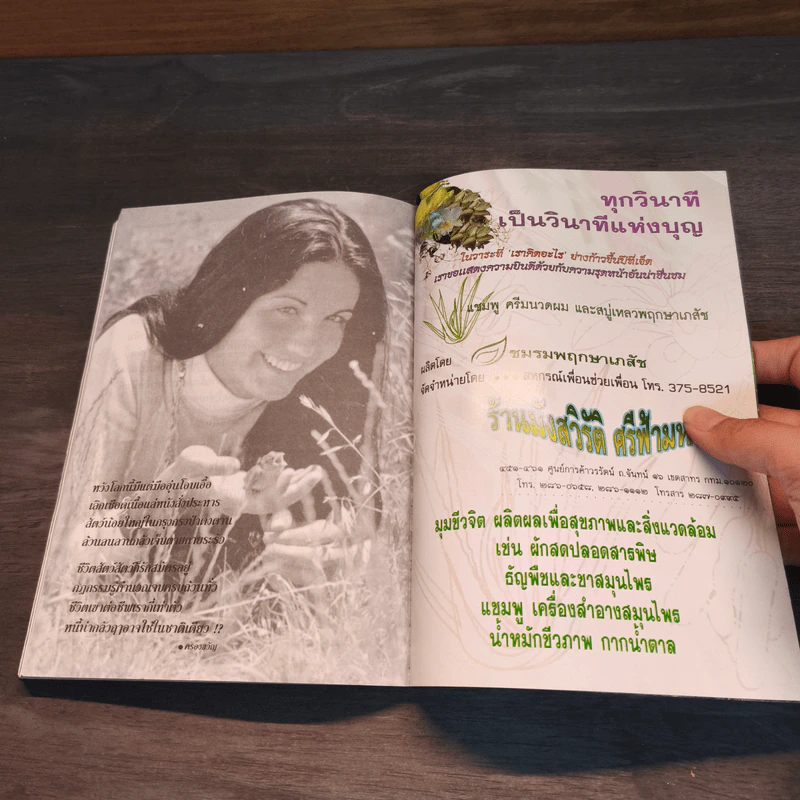 หวังโลกนี้มีแต่มืออุ่นโอบเอื้อ
เลิกเชือดเนื้อแล่หนังสังประหาร
สัตว์น้อยใหญ่ในกรงกรงป่าดงดาน
ล้วนลนลานกลัวเจ็บตายกายระรัว
ชีวิตสัตว์สัตว์ก็รักสมัครอยู่
ชีวิตเขาต่อชีพเราก็เท่าตัว
หนี้น่ากลัวฤๅอาจใช้ในชาติเดียว !?
ทุกวินาที
เป็นวินาทีแห่งบุญ
ในวาระที่ 'เราคิดอะไร' ย่างก้าวขึ้นปีที่เจ็ด
เราขอแสดงความยินดีด้วยกับความรุดหน้าอันน่าชื่นชม
แชมพู ครีมนวดผม และสบู่เหลวพฤกษาเภสัช
ผลิตโดย ชมรมพฤกษาเภสัช
จัดจำหน่ายโดย สหกรณ์เพื่อนช่วยเพื่อน โทร. 375-8521
ร้านมังสวิรัติ ศรีฟ้า
๔๕๑-๔๖๑ ศูนย์การค้าวรรัตน์ ถ.จันทน์ ๑๖ เขตสาทร กทม.๑๐๑๒๐
โทร. ๒๘๖-๐๖๕๘, ๒๘๖-๑๑๑๒ โทรสาร ๒๘๗-๐๙๙๕
มุมชีวจิต ผลิตผลเพื่อสุขภาพและสิ่งแวดล้อม
เช่น ผักสดปลอดสารพิษ
ธัญพืชและชาสมุนไพร
แชมพู เครื่องสำอางสมุนไพร
น้ำหมักชีวภาพ กากน้ำตาล